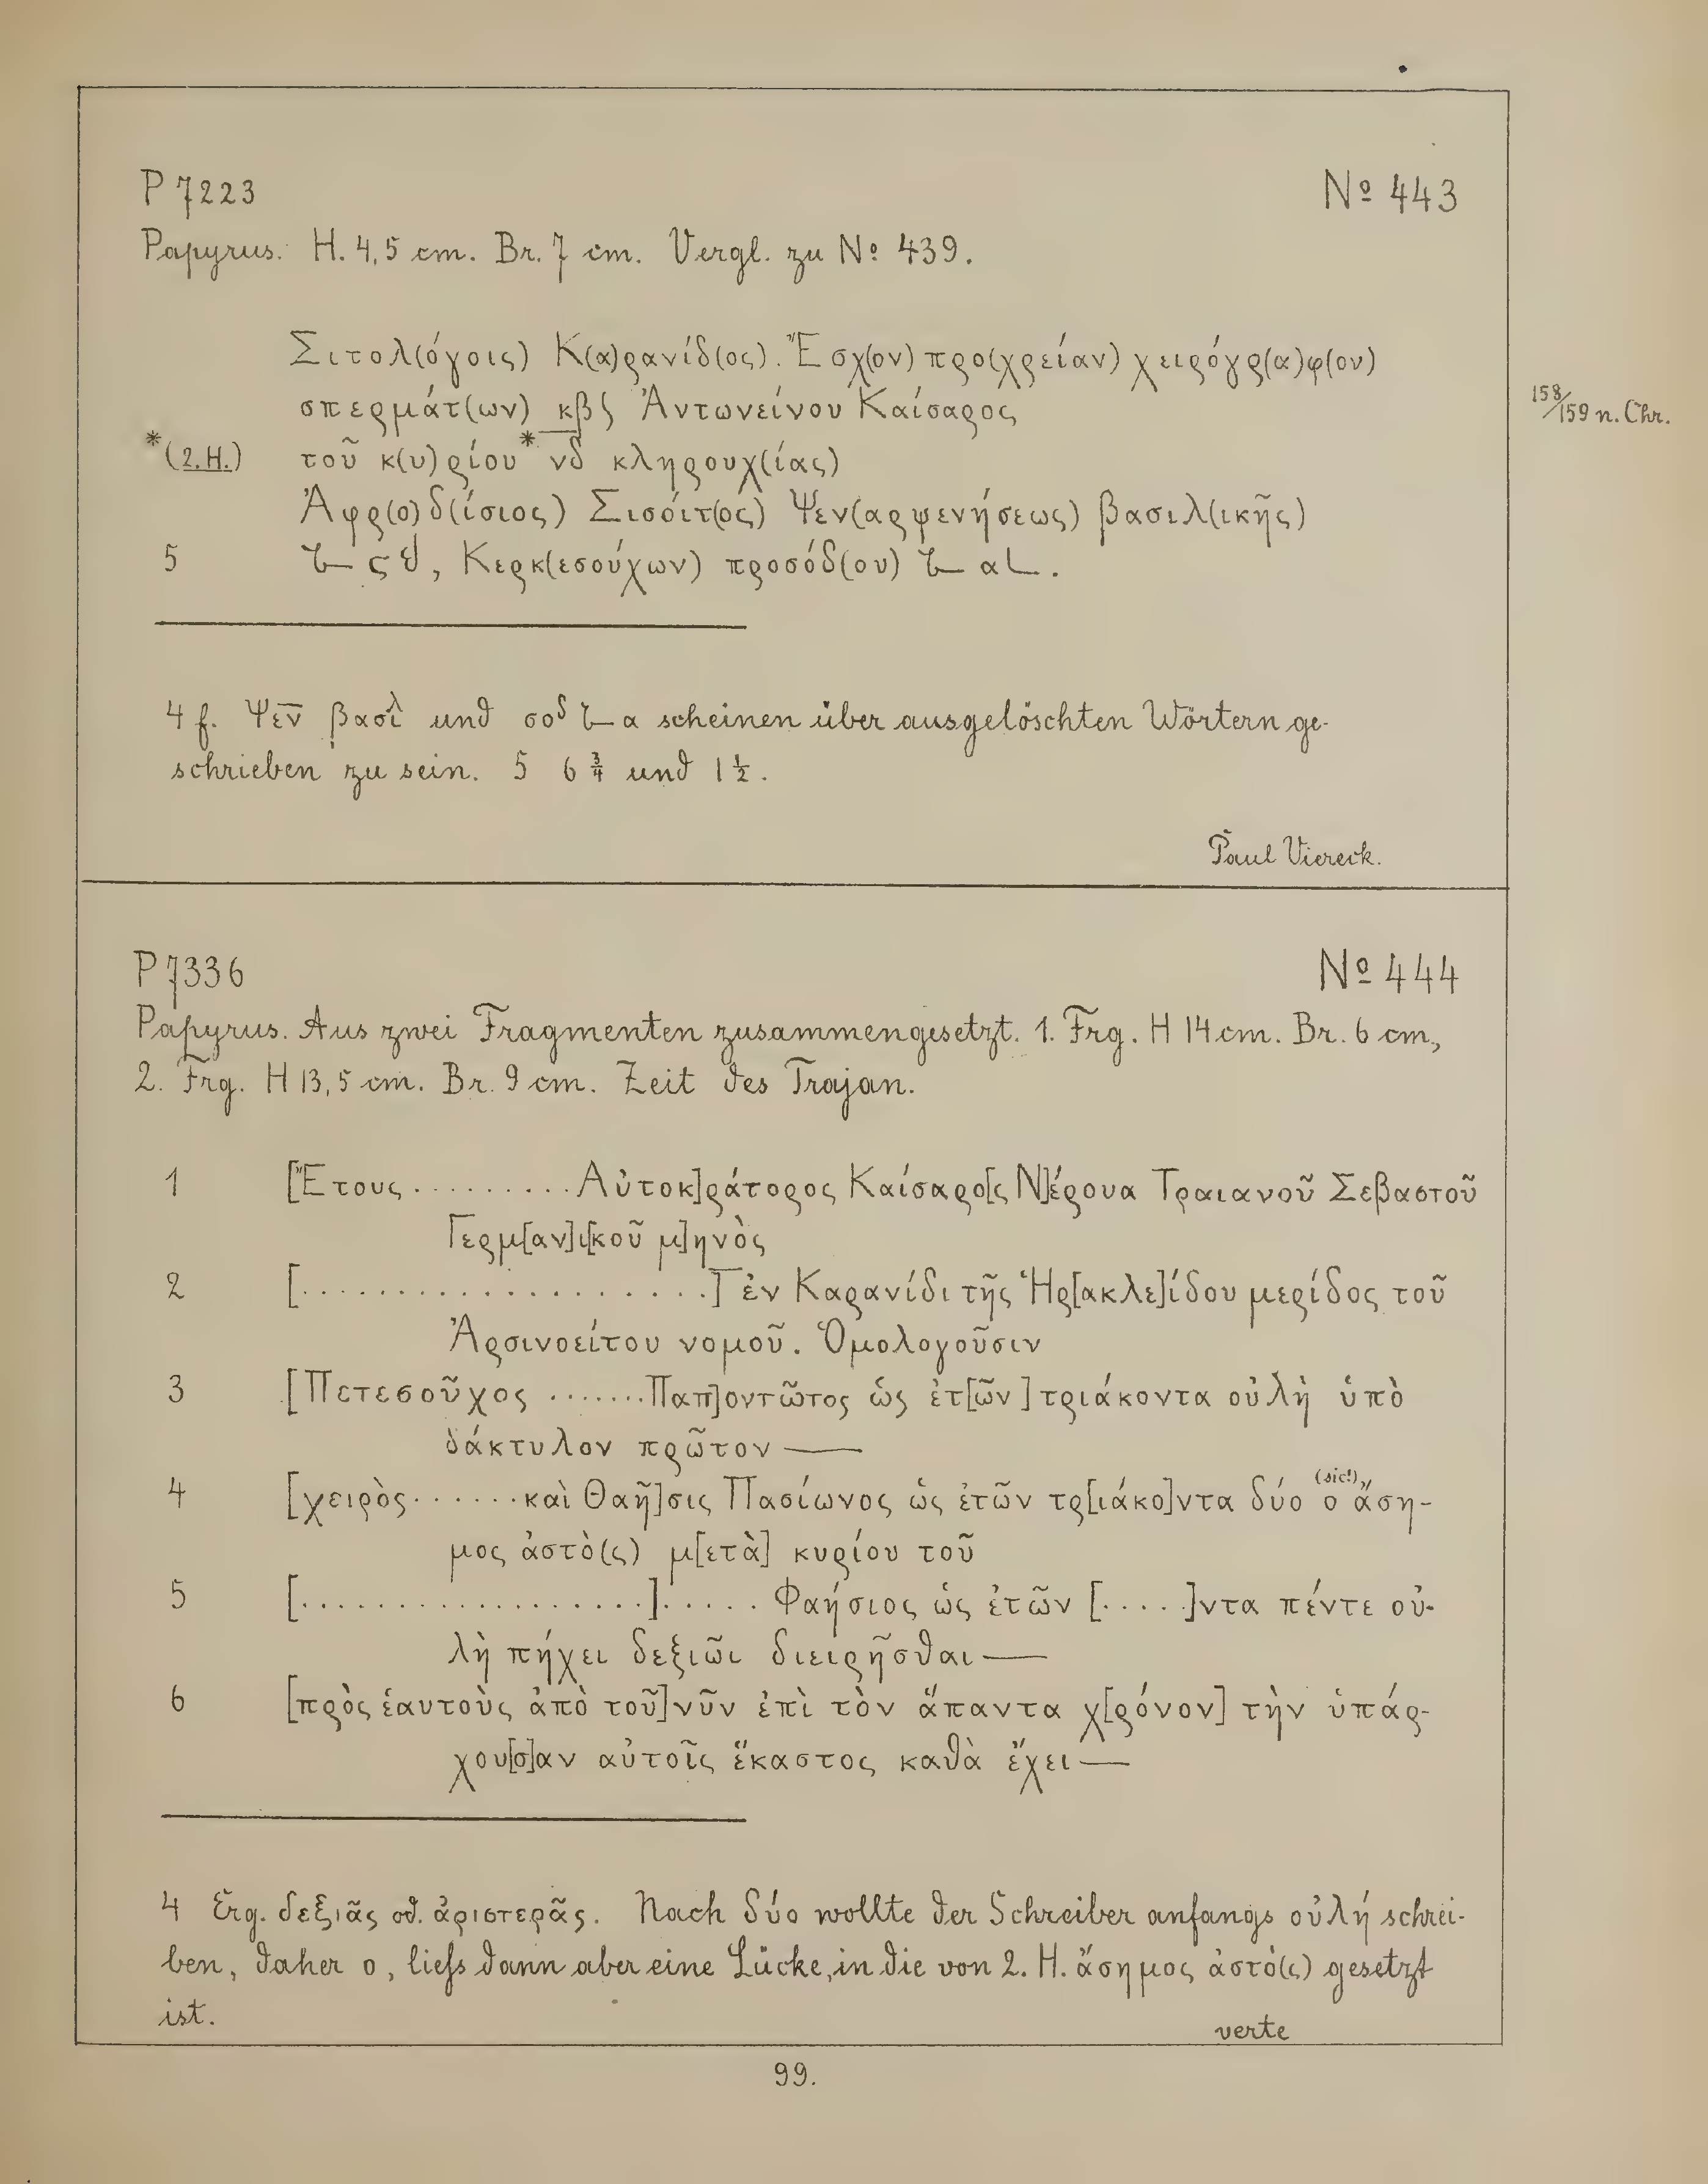 P 7223 № 443
Papyrus. H. 4,5 cm. Br. 7 cm. Vergl. zu № 439.
Σιτολ(όγοις) Κ(α)ρανίδ(ος). Ἔσχ(ον) προ(χρείαν) χειρόγρ(α)φ(ον)
σπερμάτ(ων) κβ𐅹 Ἀντωνείνου Καίσαρος
158/159 n. Chr.
*(2. H.) τοῦ κ(υ)ρίου * νδ κληρουχ(ίας)
Ἀφρ(ο)δ(ίσιος) Σισόιτ(ος) Ψεν(αρψενήσεως) βασιλ(ικῆς)
5 ⳨ ςd, Κερκ(εσούχων) προσόδ(ου) αL.
4 f. Ψεν βασιλ und σοδ α scheinen über ausgelöschten Wörtern ge-
schrieben zu sein. 5 6 3/4 und 1 1/2.
Paul Viereck.
P 7336 № 444
Papyrus. Aus zwei Fragmenten zusammengesetzt. 1. Frg. H 14 cm. Br. 6 cm,
2. Frg. H 13,5 cm. Br. 9 cm. Zeit des Trajan.
1 [Ἔτους .......... Αὐτοκ]ράτορος Καίσαρο[ς Ν]έρουα Τραιανοῦ Σεβαστοῦ
Γερμ[αν]ι[κοῦ μ]ηνὸς
2 [....................] ἐν Καρανίδι τῆς Ἡρ[ακλε]ίδου μερίδος τοῦ
Ἀρσινοείτου νομοῦ. Ὁμολογοῦσιν
3 [Πετεσοῦχος ....... Παπ]οντῶτος ὡς ἐτ[ῶν] τριάκοντα οὐλὴ ὑπὸ
δάκτυλον πρῶτον —
4 [χειρὸς ....... καὶ Θαῆ]σις Πασίωνος ὡς ἐτῶν τρ[ιάκο]ντα δύο ο (sic!) ἄση-
μος ἀστὸ(ς) μ[ετὰ] κυρίου τοῦ
5 [.................]..... Φαήσιος ὡς ἐτῶν [.....]ντα πέντε οὐ-
λὴ πήχει δεξιῶι διειρῆσθαι —
6 [πρὸς ἑαυτοὺς ἀπὸ τοῦ] νῦν ἐπὶ τὸν ἅπαντα χ[ρόνον] τὴν ὑπάρ-
χου[σ]αν αὐτοῖς ἕκαστος καθὰ ἔχει —
4 Erg. δεξιᾶς od. ἀριστερᾶς. Nach δύο wollte der Schreiber anfangs οὐλή schrei-
ben, daher ο, liefs dann aber eine Lücke, in die von 2. H. ἄσημος ἀστό(ς) gesetzt
ist.
verte
99.